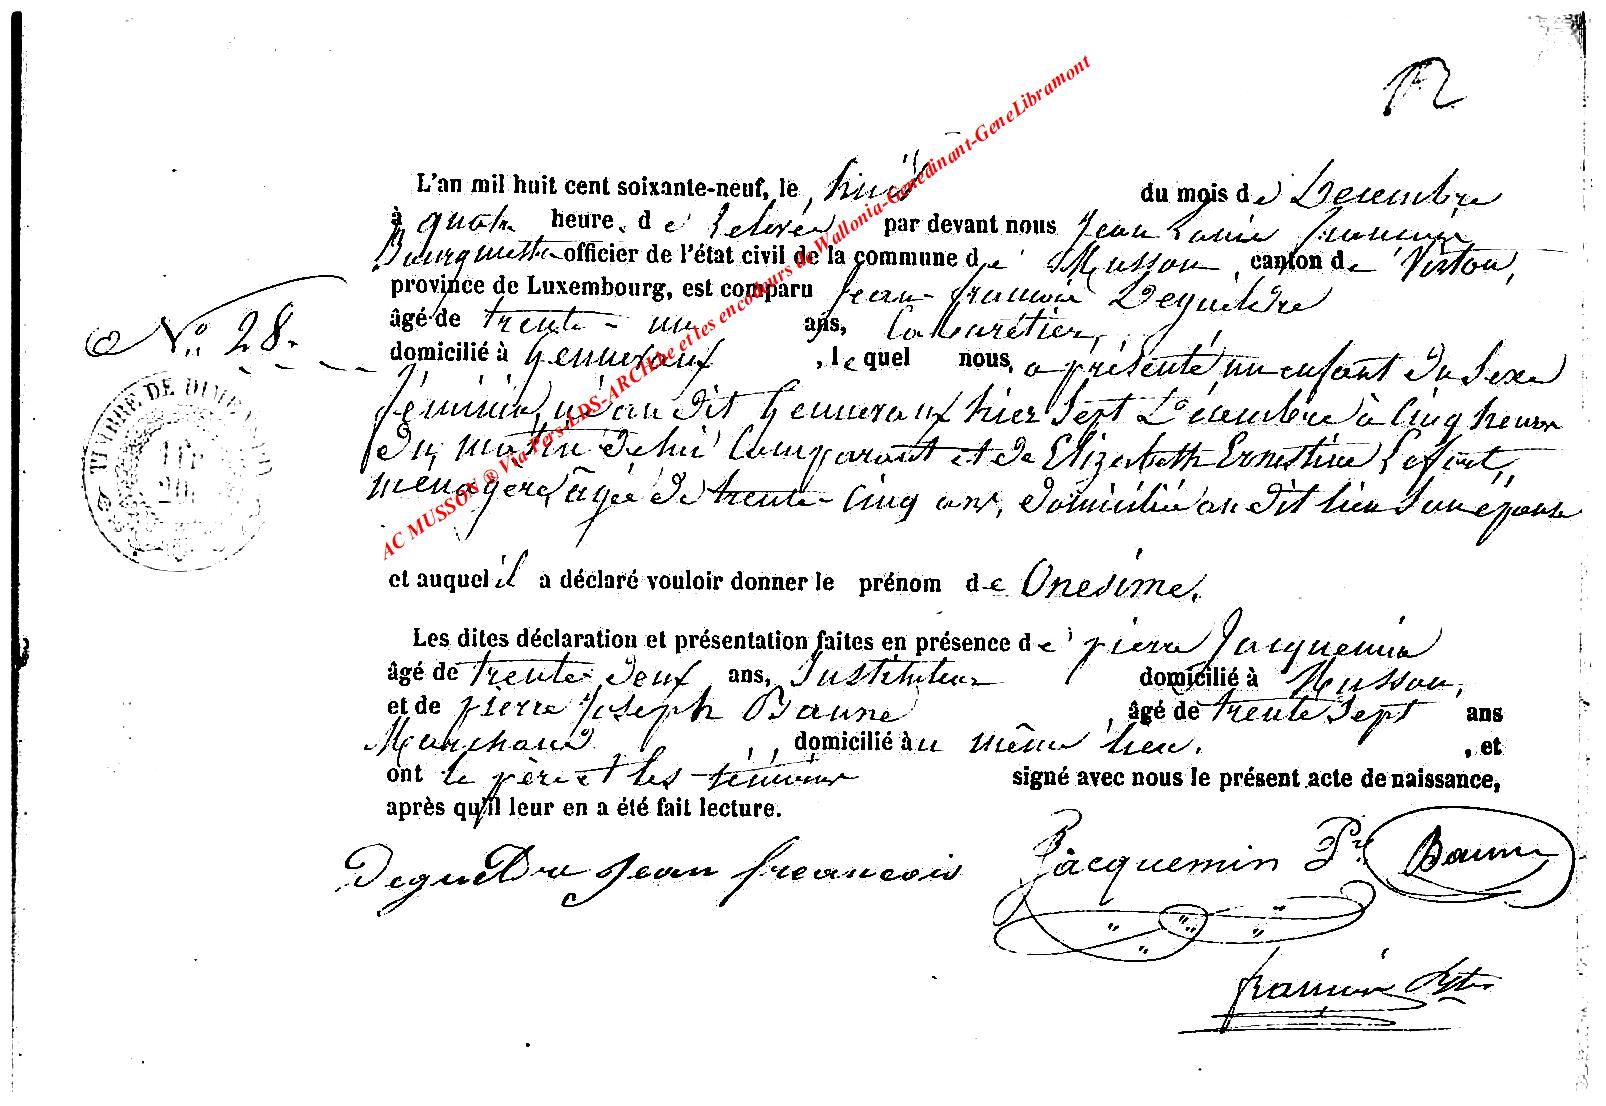 12
L'an mil huit cent soixante-neuf, le huit du mois de Décembre
à quatre heure. de relevée par devant nous Jean Louis François
Bourguette officier de l'état civil de la commune de Musson, canton de Virton,
province de Luxembourg, est comparu Jean François Degueldre
âgé de trente-un ans, Cabaretier,
N° 28.
domicilié à Gennevaux, lequel nous, a présenté un enfant du Sexe
féminin, né au dit Gennevaux hier Sept Décembre à Cinq heures
du matin de lui Comparant et de Elizabeth Ernestine Lefort,
ménagère, âgée de trente-Cinq ans, domiciliée au dit lieu Son épouse
et auquel il a déclaré vouloir donner le prénom de Onesime.
Les dites déclaration et présentation faites en présence de pierre Jacquemin
âgé de trente-deux ans, Instituteur domicilié à Musson,
et de pierre Joseph Baune, âgé de trente Sept ans
Marchand, domicilié au même lieu., et
ont le père et les témoins signé avec nous le présent acte de naissance,
après qu'il leur en a été fait lecture.
Degueldre Jean françois Jacquemin Pre Baune
TIMBRE DE DIMENSION
AC MUSSON ® Via Pers-LDS-ARCHive et les encodeurs de Wallonia-Genedinant-GeneLibramont